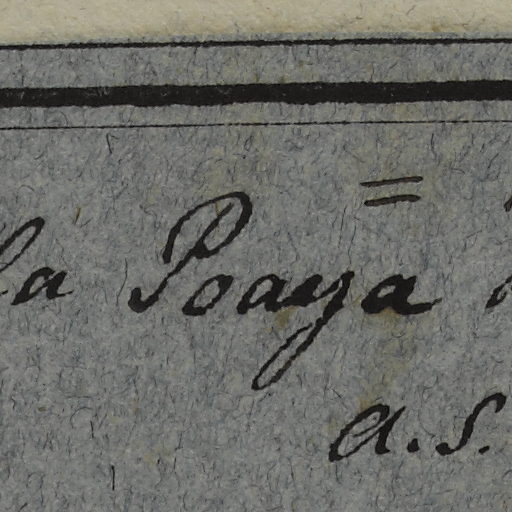 la Poaya
a.s.